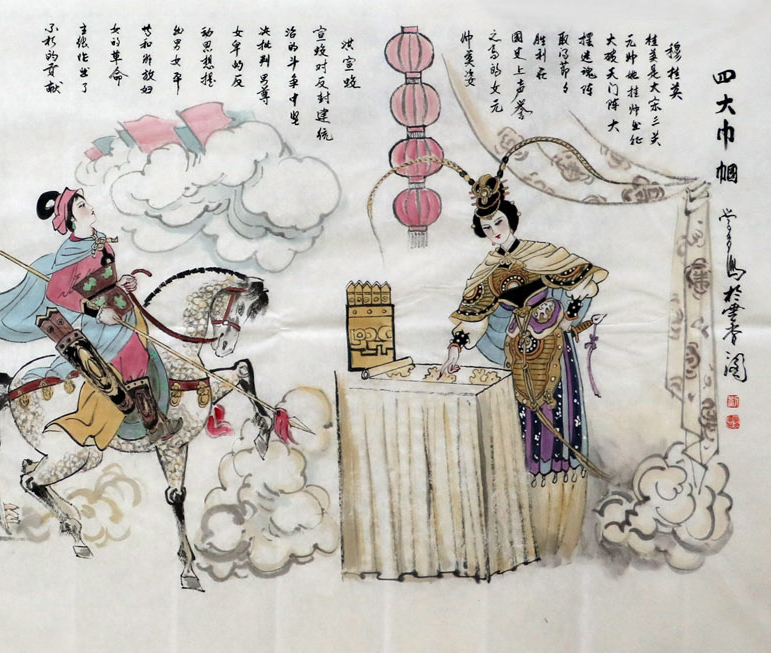 四大巾帼
於雲香阁
穆桂英
桂英是大宋三关
元帅她挂帅出征
大破天门阵大
摆迷魂阵
取得节々
胜利在
国史上声誉
之高的女元
帅英姿
洪宣娇
宣娇对反封建统
治的斗争中坚
决批判男尊
女卑的反
动思想提
出男女平
等和解放妇
女的革命
主张作出了
不朽的贡献